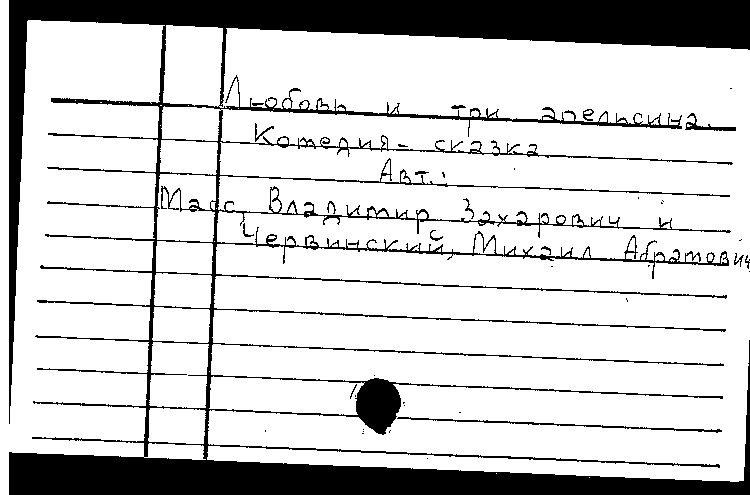 Любовь и три апельсина.
Комедия - сказка.
Авт.:
Масс, Владимир Захарович и
Червинский, Михаил Абрамович